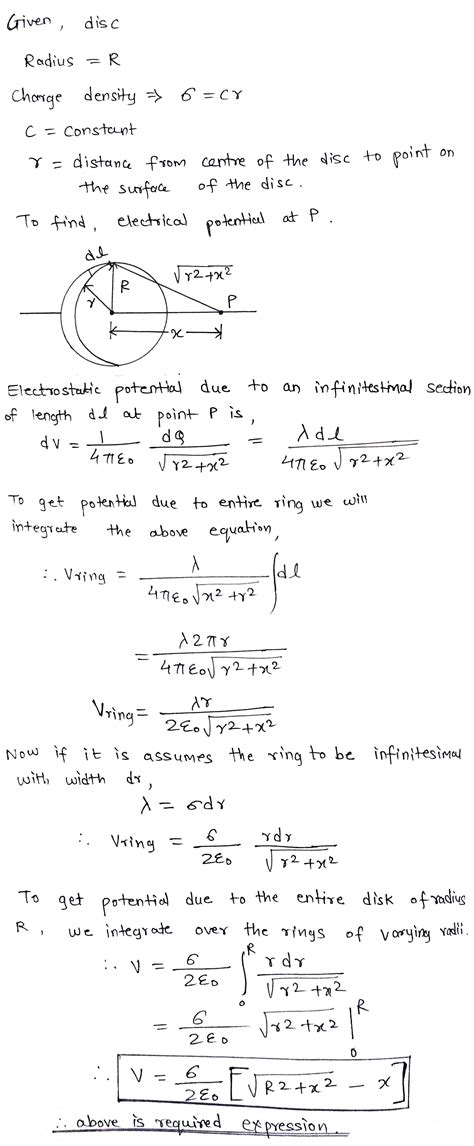 Given, disc
Radius = R
Charge density ⇒ σ = cr
C = constant
r = distance from centre of the disc to point on
the surface of the disc.
To find, electrical potential at P.
dl
√r2+x2
R
P
r
x
Electrostatic potential due to an infinitestimal section
of length dl at point P is,
dV = 1/4πε0 dQ/√r2+x2 = λdl/4πε0√r2+x2
To get potential due to entire ring we will
integrate the above equation,
∴ Vring = λ/4πε0√x2+r2 ∫dl
= λ2πr/4πε0√r2+x2
Vring = λr/2ε0√r2+x2
Now if it is assumes the ring to be infinitesimal
with width dr,
λ = σdr
∴ Vring = σ/2ε0 rdr/√r2+x2
To get potential due to the entire disk of radius
R, we integrate over the rings of varying radii.
∴ V = σ/2ε0 ∫0R rdr/√r2+x2
= σ/2ε0 √r2+x2 |0R
∴ V = σ/2ε0 [√R2+x2 - x]
∴ above is required expression.